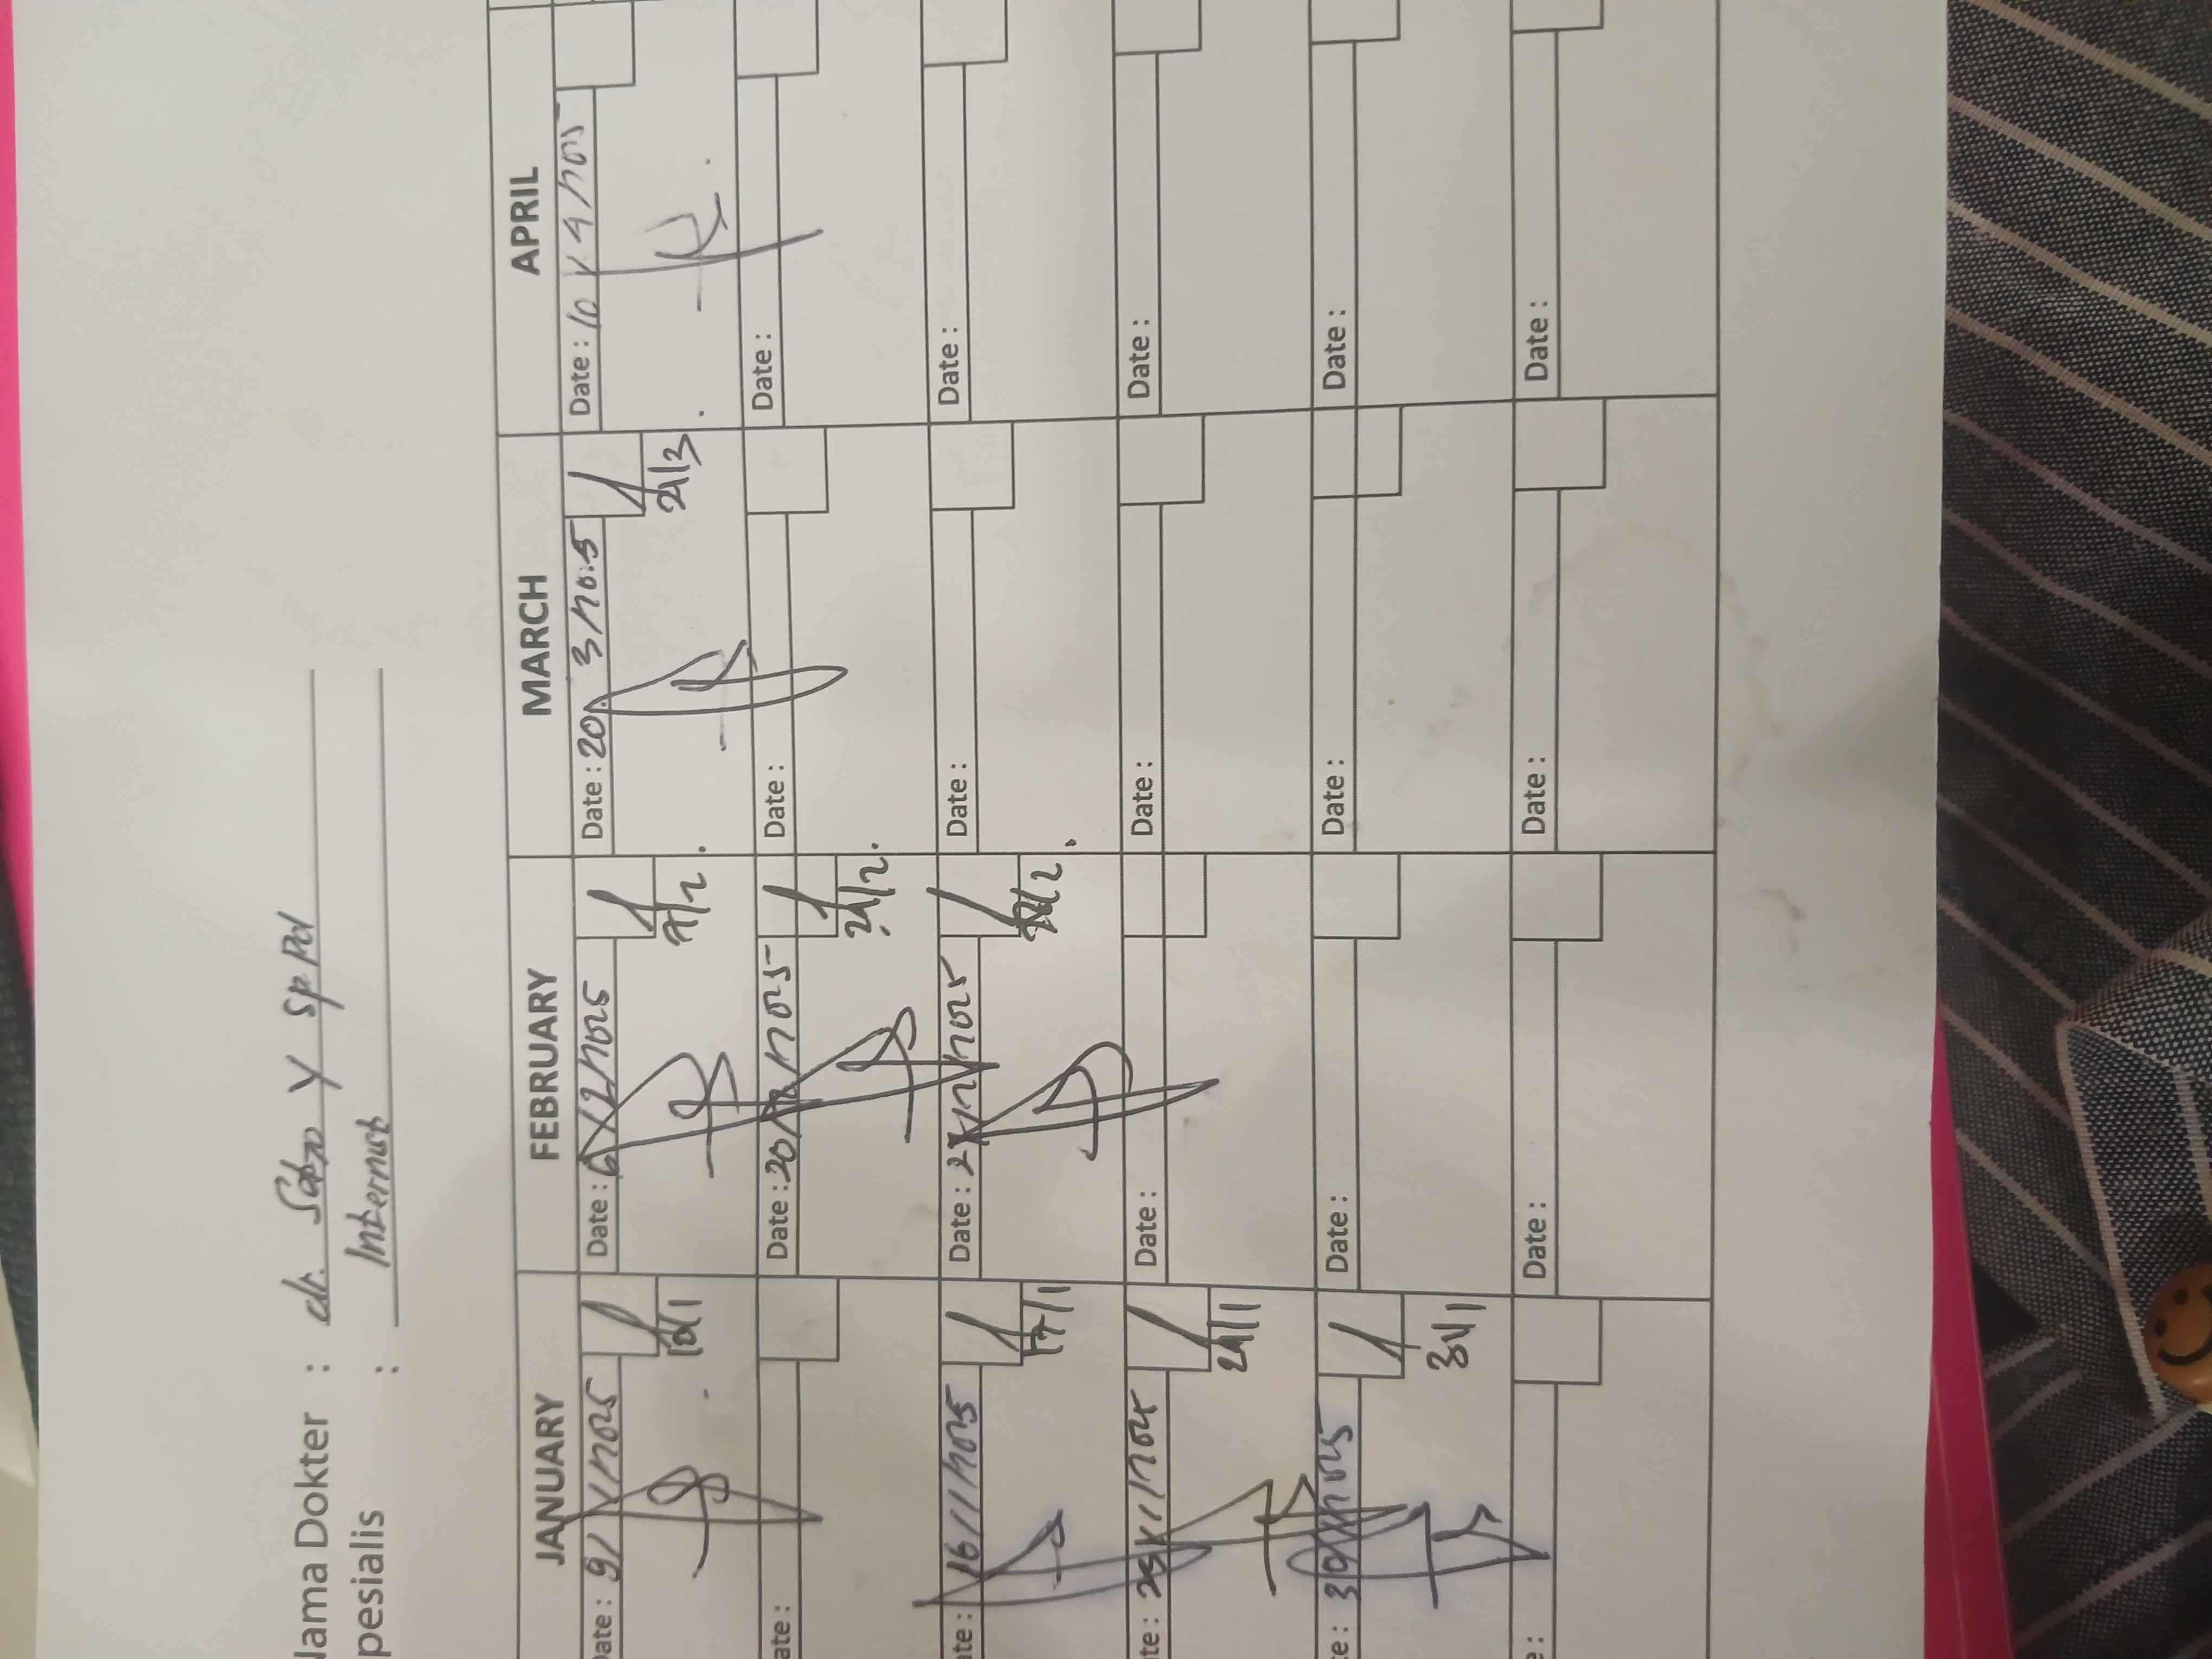 Nama Dokter : dr. Y Sp PD
pesialis : Internist
JANUARY FEBRUARY MARCH APRIL
ate : 9/1/2025 Date : 6/2/2025 Date : 20 3/2025 Date : 10/4/2025
10/1 7/2. 21/3.
ate : Date : 20/2/2025 Date : Date :
21/2.
ate : 16/1/2025 Date : 27/2/2025 Date : Date :
17/1 28/2.
te : 23/1/2025 Date : Date : Date :
24/1
te : 30/1/2025 Date : Date : Date :
31/1
e : Date : Date : Date :